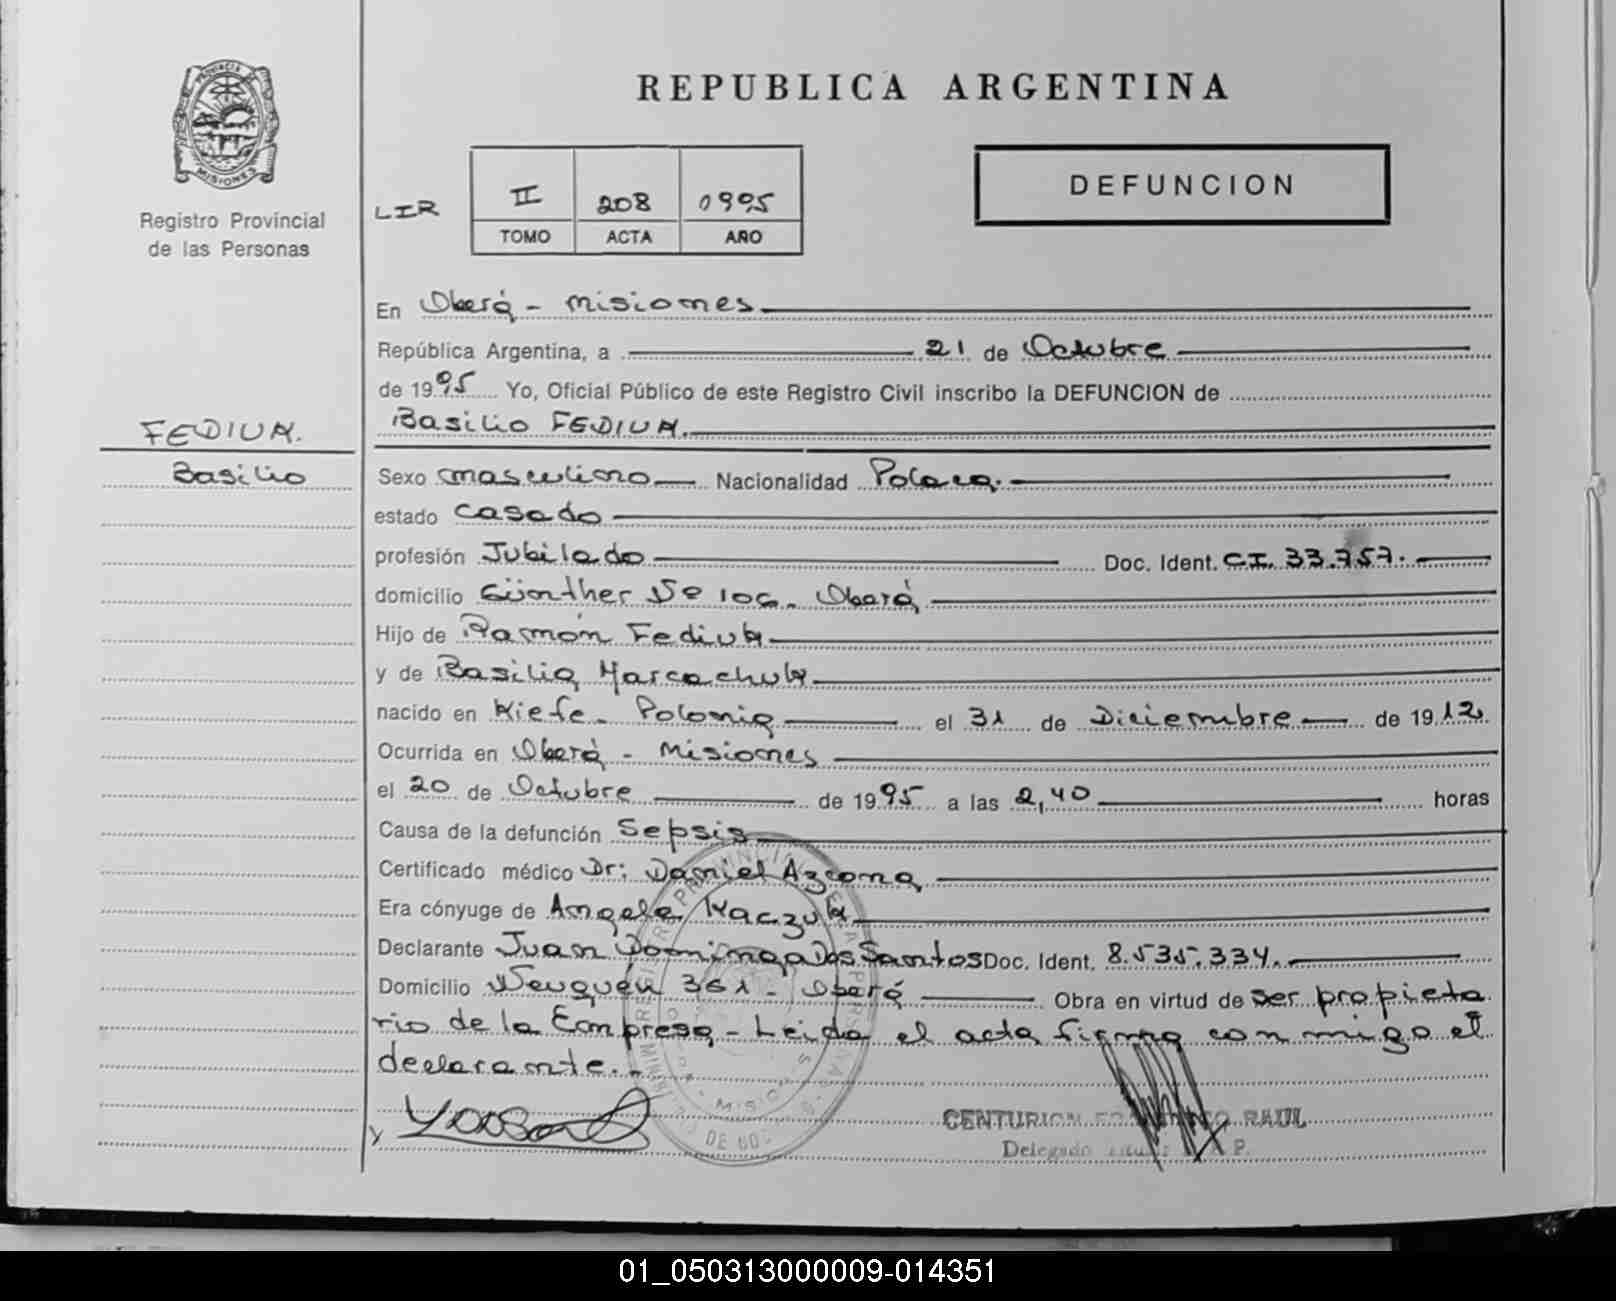 REPUBLICA ARGENTINA
PROVINCIA DE
MISIONES
Registro Provincial
de las Personas
LIR
II 208 1995
TOMO ACTA AÑO
DEFUNCION
En Oberá - Misiones
República Argentina, a 21 de Octubre
de 1995 Yo, Oficial Público de este Registro Civil inscribo la DEFUNCION de
Basilio FEDIUK.
FEDIUK.
Basilio
Sexo masculino Nacionalidad Polaca.
estado casado
profesión Jubilado Doc. Ident. C.I. 33.757.
domicilio Günther Nº 106 - Oberá
Hijo de Ramón Fediuk
y de Basilia Marcachuk
nacido en Kiefe - Polonia el 31 de Diciembre de 1912
Ocurrida en Oberá - Misiones
el 20 de Octubre de 1995 a las 2,40 horas
Causa de la defunción Sepsis
Certificado médico Dr: Daniel Azcona
Era cónyuge de Angela Kaczuk
Declarante Juan Domingo Dos Santos Doc. Ident. 8.535.334.
Domicilio Neuquén 361 - Oberá Obra en virtud de ser propieta
rio de la Empresa - Leida el acta firma conmigo el
declarante.-
CENTURION RAUL
Delegado
01_050313000009-014351